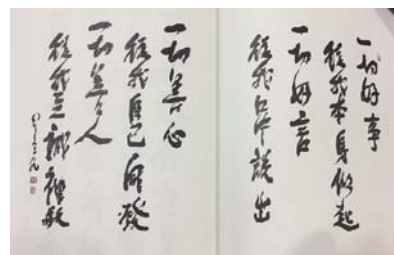 一切好事
從我本身做起
一切好言
從我口中說出
一切善心
從我自己發
一切善人
從我至誠禮敬